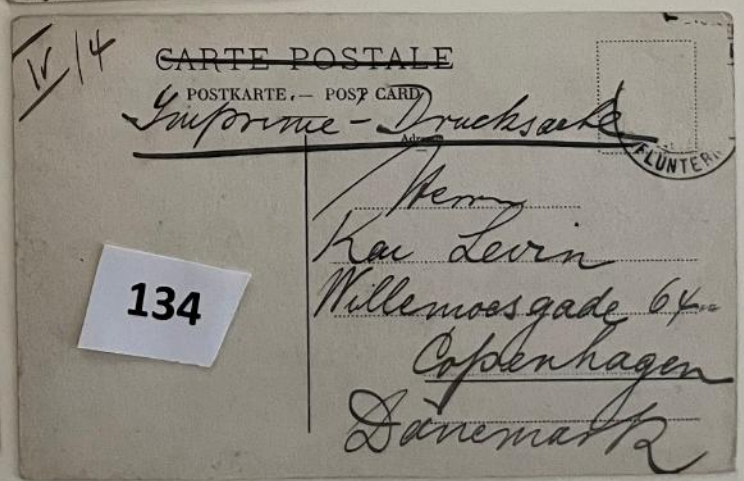 IV/4
CARTE POSTALE
POSTKARTE. — POST CARD
Imprimé - Drucksache
Herrn
Kai Levin
Willemoesgade 64
Copenhagen
Dänemark
134
FLUNTERN